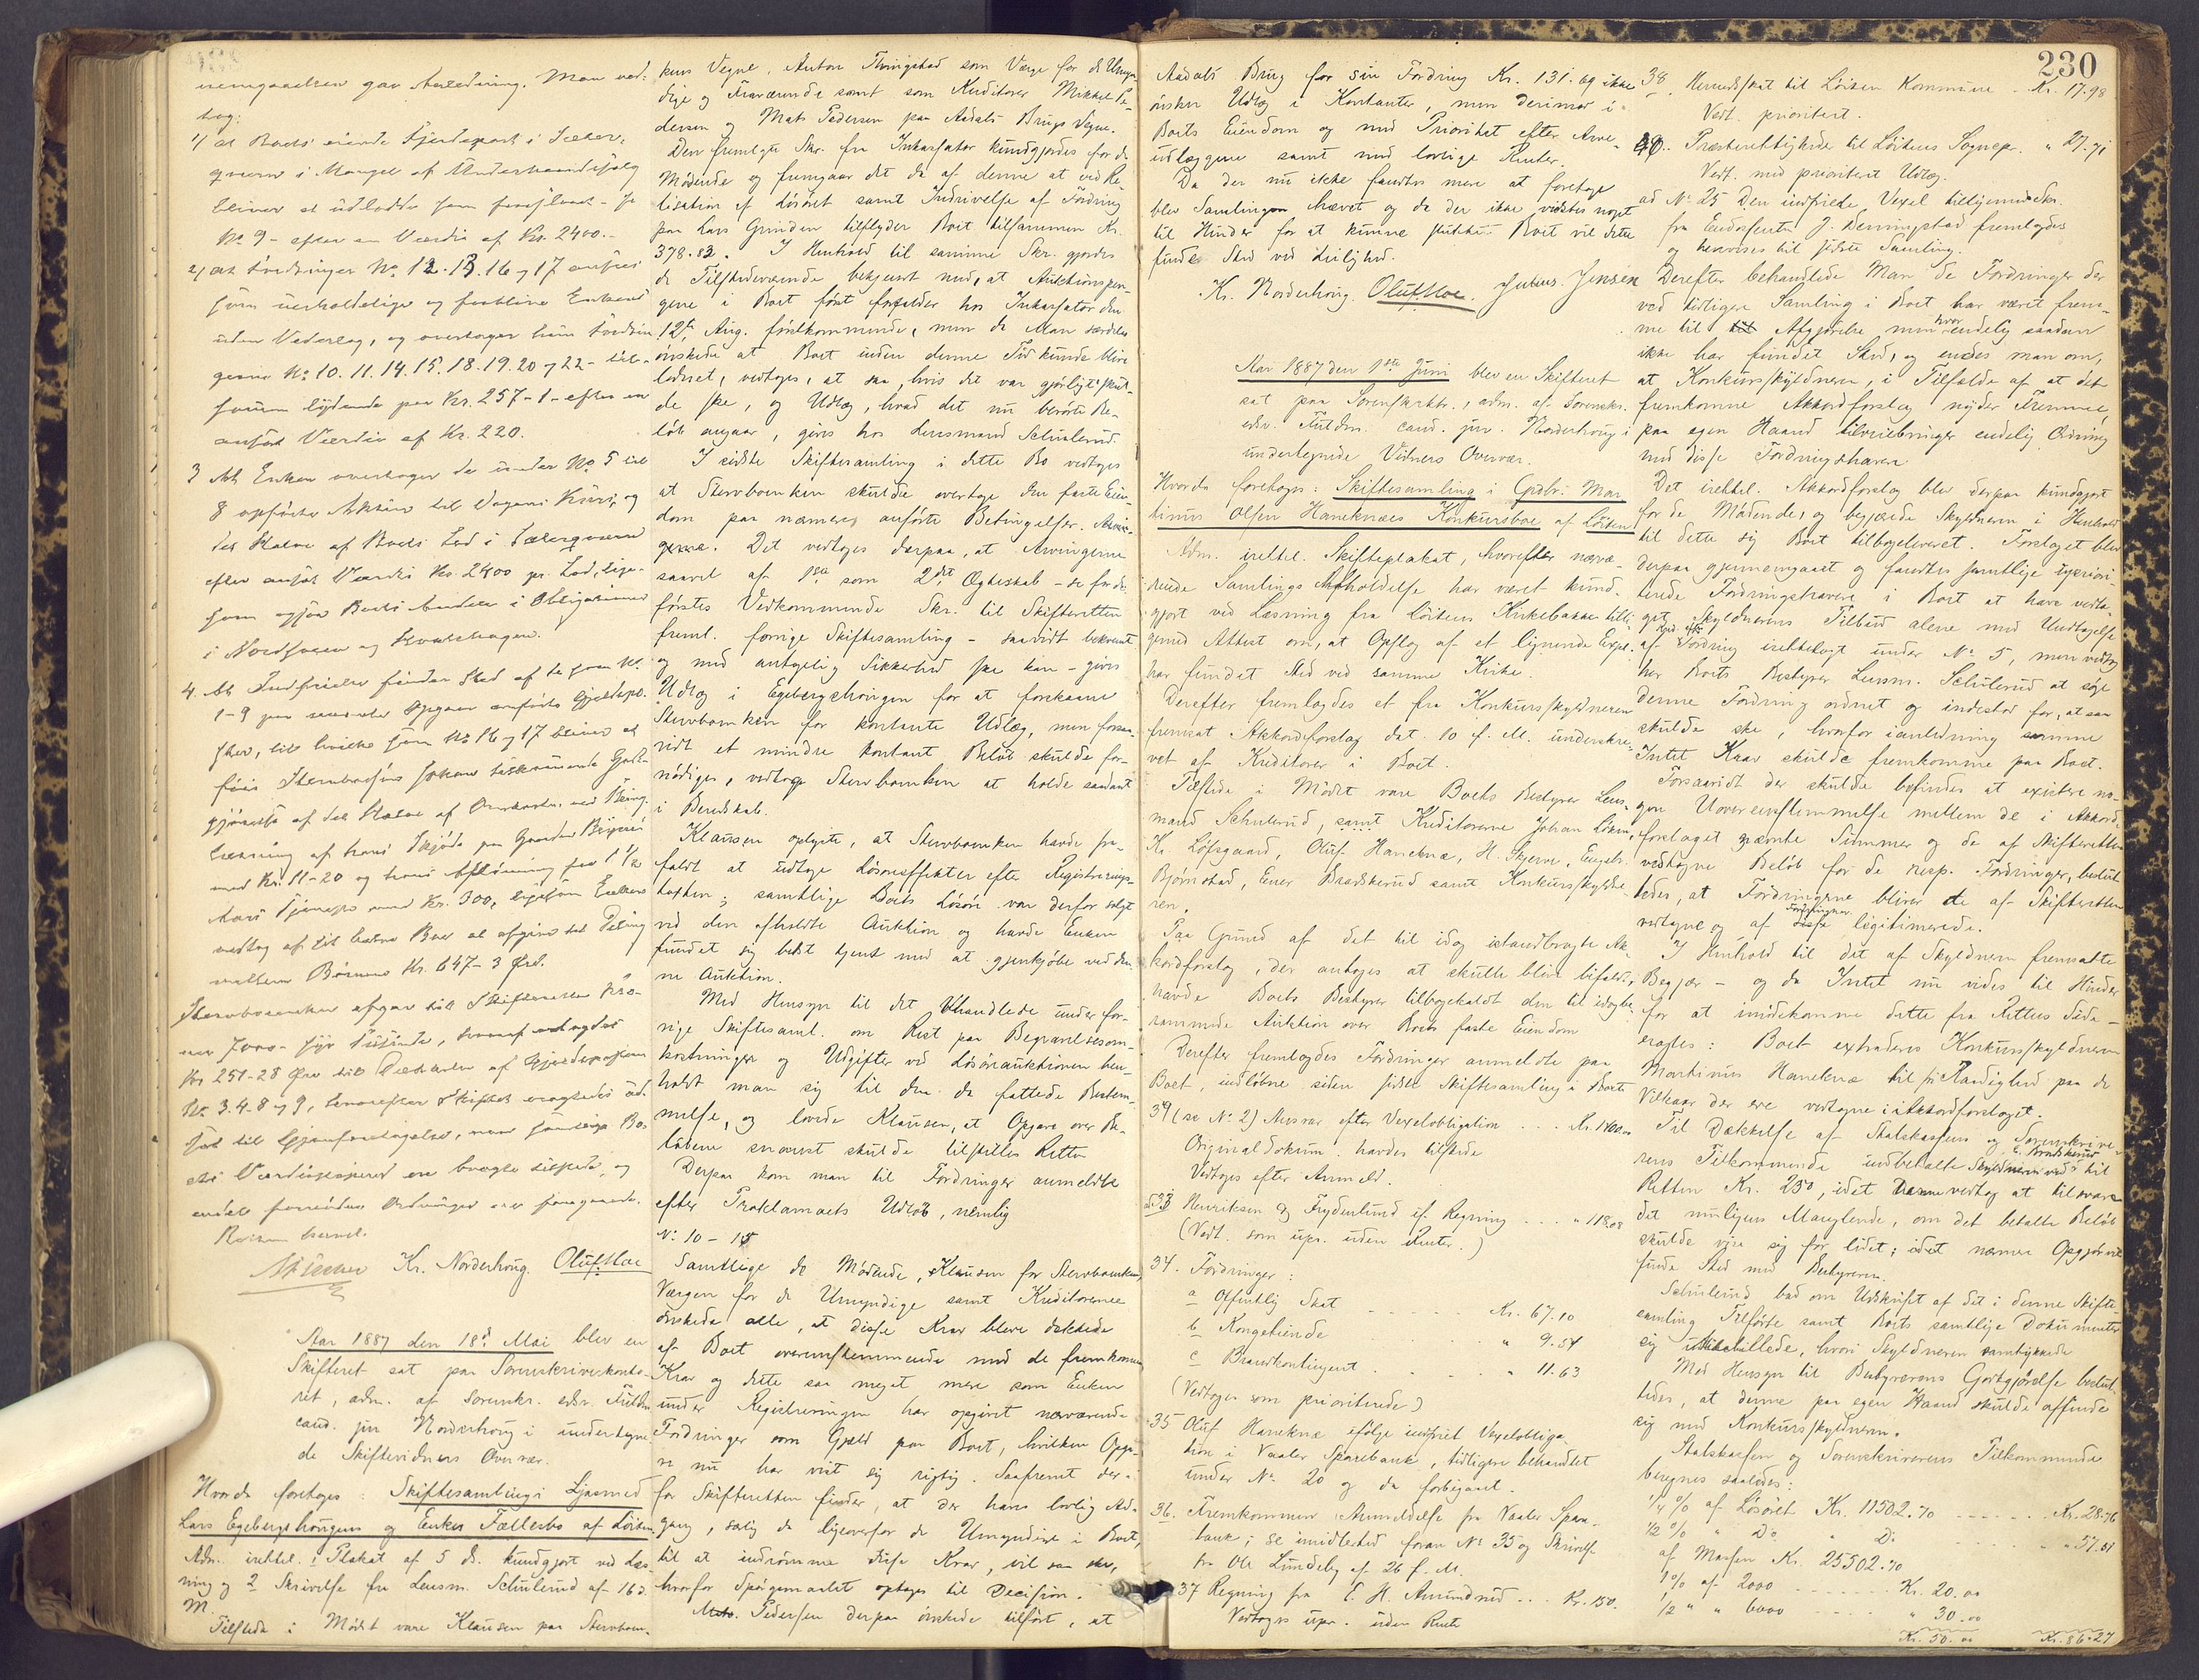 nemgaaelsen gav Anledning. Man ved-
tog:
1/ at Boets eiende Fjerdepart i Sæter-
qværn i Mangel af Underhaandssalg
bliver at udlodde som
No 9 - efter en Værdi af Kr. 2400.-
2/ at Fordringer No 12. 13. 16 og 17 ansees
som uerholdelige og Enkens
uden Vederlag, og overtager hun Fordrin
gerne No 10. 11. 14. 15. 18. 19. 20 og 22 - til-
sammen lydende paa Kr. 257-1- efter en
anført Værdi af Kr. 220.
3 At Enken overtager de under No 5 til
8 opførte Aktier til Kurs, og
det Halve af Boets Lod i Sæterqværn
efter anført Værdi Kr. 2400 pr. Lod, lige-
som ogsaa Boets Andele i Obligationer
i og
4. At Indfrielse finder Sted af de foran No
1-9 paa Opgave anførte Gjældspo-
ster, til hvilke som No 16 og 17 bliver at
føie Stervbo Godt-
gjørelse af det Halve af Omkostn. ved Thing-
læsning af hans Skjøde paa Gaarden
med Kr. 11-20 og hans Afløning for 1 1/2
Aars Tjeneste med Kr. 300, ligesom Enken
vedtog at
mellem Børnene Kr. 647-3 Øre.
Stervboenken afgav til Skifteretten Kro-
ner 7000 - syv Tusinde, hvoraf udtoges
Kr. 251-28 Øre til Dækkelse af Gjældsposterne
No 3. 4. 8 og 9, hvorefter Skiftet eragtedes ud-
sat til Gjenforetagelse, naar samtlige Bo-
ets Værdipapirer ere bragte tilstede, og
endel fornøden Ordning er foregaaende.
Retten hævet.
Kr. Norderhoug. Oluf Moe
Aar 1887 den 18d Mai blev en
Skifteret sat paa Sorenskriverkonto-
ret, adm. af Sorenskr. edsv. Fuldm.
cand. jur Norderhoug i undertegne-
de Skiftevidners Overvær.
Hvorda foretoges: Skiftesamling i Ljasmed
Lars Egebergshougens og Enkes Fællesbo af Løiten.
Adm. irettel. i Plakat af 5 ds. kundgjort ved Læs-
ning og 2 Skrivelse fra Lensm. Schulerud af 16 d.
M.
Tilstede i Mødet vare Klausen paa Stervboen-
kens Vegne, Anton Thingstad som Værge for de Umyn-
dige og Fraværende samt som Kreditorer Mikkel Pe-
dersen og Mats Pedersen paa Aadals Brugs Vegne.
Den fremlagte Skr. fra Inkassator kundgjordes for de
Mødende og fremgaar det da af denne at ved Re-
lisation af Løsøret samt Inddrivelse af Fordring
paa Lars Grinden tilflyder Boet tilsammen Kr.
378.83. I Henhold til samme Skr. gjordes
de Tilstedeværende bekjendt med, at Auktionspen-
gene i Boet først forfalder hos Inkassator den
12te Aug. førstkommende, men da Man særdeles
ønskede at Boet inden denne Tid kunde blive
loddnet, vedtoges, at saa, hvis det var gjørligt, skul-
de ske, og Udlæg, hvad det nu berørte Be-
løb angaar, gives hos Lensmand Schulerud.
I sidste Skiftesamling i dette Bo vedtoges
at Stervboenken skulde overtage den faste Eien-
dom paa nærmere anførte Betingelser. Arvin-
gerne. Det vedtoges derpaa, at Arvingerne
saavel af 1ste som 2det Ægteskab - se for de
førstes Vedkommende Skr. til Skifteretten
freml. forrige Skiftesamling - saavidt bekvemt
og med antagelig Sikkerhed ske kan - gives
Udlæg i Egebergshougen for at forskaane
Stervboenken for kontante Udlæg, men forsaa-
vidt et mindre kontant Beløb skulde for-
nødiges, vedtoge Stervboenken at holde saadant
i Beredskab.
Klausen oplyste, at Stervboenken havde fra-
faldt at udtage Løsøreffekter efter Registrerings-
taxten; samtlige Boets Løsøre var derfor solgt
ved den afholdte Auktion og havde Enken
fundet sig bedst tjent med at gjenkjøbe ved den-
ne Auktion.
Med Hensyn til det behandlede under for-
rige Skiftesaml. om Rest paa Begravelsesom-
kostninger og Udgifter ved Løsøreauktionen hen-
holdt man sig til den da fattede Bestem-
melse, og lovede Klausen, at Opgave over Be-
løbene snarest skulde tilstilles Retten
Derpaa kom man til Fordringer anmeldte
efter Proklamaets Udløb, nemlig
No 10 - 15
Samtlige de Mødende, Klausen for Stervboenken,
Værgen for de Umyndige samt Kreditorerne
ønskede alle, at disse Krav bleve dækkede
af Boet overensstemmende med de fremkomne
Krav og dette saa meget mere som Enken
under Registreringen har opgivet nærværende
Fordringer som Gjæld paa Boet, hvilken Opga-
ve nu har vist sig rigtig. Saafremt der-
for Skifteretten finder, at der haves lovlig Ad-
gang, særlig da ligeoverfor de Umyndige i Boet,
til at indrømme disse Krav, vil saa ske,
hvorfor Spørgsmaalet optages til Decision.
Mats. Pedersen derpaa ønskede tilført, at
230
Aadals Brug for sin Fordring Kr. 131.69 ikke
ønsker Udlæg i Kontanter, men derimod i
Boets Eiendom og med Prioritet efter Arve-
udlæggene samt med lovlige Renter.
Da der nu ikke fandtes mere at foretage
blev Samlingen hævet og da der ikke vidstes noget
til Hinder for at kunne slutte Boet vil dette
finde Sted ved Leilighed.
Kr. Norderhoug. Oluf Moe. Julius Jensen
Aar 1887 den 1ste Juni blev en Skifteret
sat paa Sorenskrkt., adm. af Sorenskr.
edsv. Fuldm. cand. jur. Norderhoug i
undertegnede Vidners Overvær.
Hvorda foretoges: Skiftesamling i Gaardbr. Mar-
tinus Olsen Haneknæs Konkursboe af Løiten
Adm. irettel. Skifteplakat, hvorefter nærvæ-
rende Samlings Afholdelse har været kund-
gjort ved Læsning fra Løitens Kirkebakke tilli-
gemed Attest om, at Opslag af et lignende Expl.
har fundet Sted ved samme Kirke.
Derefter fremlagdes et fra Konkursskyldneren
fremsat Akkordforslag dat. 10 f. M. underskre-
vet af Kreditorer i Boet.
Tilstede i Mødet vare Boets Bestyrer Lens-
mand Schulerud, samt Kreditorerne Johan Løken,
Kr. Løfsgaard, Oluf Haneknæ, H. Skjerve, Engebr.
Bjørnstad, Ener Bradskerud samt Konkursskyldne-
ren.
Paa Grund af det til idag istandbragte Ak-
kordforslag, der antoges at skulle blive bifaldt,
havde Boets Bestyrer tilbagekaldt den til idag be-
rammede Auktion over Boets faste Eiendom
Derefter fremlagdes Fordringer anmeldte paa
Boet, indløbne siden sidste Skiftesamling i Boet
39 (se No 2) Ansvar efter Vexelobligation ... Kr. 1400.00
Originaldokum. havdes tilstede
Vedtoges efter Anmeld.
ad 33 Henriksen & Frydenlund ef. Regning .... " 118.08
(Vedt. som upr. uden Renter.)
34. Fordringer:
a Offentlig Skat ..... Kr. 67.10
b Kongetiende ... " 9.54
c Brandkontingent. ..... " 11.63
(Vedtoges som prioriterede)
35 Oluf Haneknæ ifølge indfriet Vexelobliga-
tion i Vaaler Sparebank, tidligere behandlet
under No 20 og da forbigaaet.
36. Fremkommen Anmeldelse fra Vaaler Spare-
bank; se imidlertid foran No 35 og Skrivelse
fra Ole Lundeby af 26 f. M.
37 Regning fra E. H. Amundrud ... Kr. 150.
Vedtoges upr. uden Rente
38. Herredsskat til Løiten Kommune - Kr. 17.98
Vedt. prioritert.
40.. Præsterettighede til Løitens Sognepr. " 27.71
Vedt. med prioritert Udlæg.
ad No 25 Den indfriede Vexel tilligemed Skr.
fra Endossenten J. Benningstad fremlagdes
og henvises til sidste Samling.
Derefter behandlede Man de Fordringer der
ved tidligere Samling i Boet har været frem-
me til Afgjørelse, men hvor endelig saadan
ikke har fundet Sted, og enedes man om,
at Konkursskyldneren, i Tilfælde af at det
fremkomne Akkordforslag nyder Fremme,
paa egen Haand tilveiebringer endelig Ordning
med disse Fordringshavere
Det irettel. Akkordforslag blev derpaa kundgjort
for de Mødende, og begjærede Skyldneren i Henhold
til dette sig Boet tilbageleveret. Forslaget blev
derpaa gjennemgaaet og fandtes samtlige upriori-
terede Fordringshavere i Boet at have vedta-
get Skyldnerens Tilbud alene med Undtagelse
af Fordring irettelagt under No 5, men vedtog
her Boets Bestyrer Lensm. Schulerud at søge
denne Fordring ordnet og indestod for, at saa
skulde ske, hvorfor i anledning samme
Intet Krav skulde fremkomme paa Boet.
Forsaavidt der skulde befindes at existere no-
gen Uoverensstemmelse mellem de i Akkord-
forslaget nævnte Summer og de af Skifteretten
vedtagne Beløb for de resp. Fordringer, beslut-
tedes, at Fordringerne bliver de af Skifteretten
vedtagne og af Fordringshaver legitimerede.
I Henhold til det af Skyldneren fremsatte
Begjær - og da Intet nu vides til Hinder
for at imødekomme dette fra Rettens Side -
eragtes: Boet extraderes Konkursskyldneren
Martinus Haneknæ til fri Raadighed paa de
Vilkaar der ere vedtagne i Akkordforslaget.
Til Dækkelse af Statskassens og Sorenskrive-
rens Tilkommende indbetalte E. Bradskerud til
Retten Kr. 250, idet Denne vedtog at tilsvare
det muligens Manglende, om det betalte Beløb
skulde vise sig for lidet; idet nærmere Opgjør vil
finde Sted med Bestyreren.
Schulerud bad om Udskrift af det i denne Skifte-
samling Tilførte samt Boets samtlige Dokumenter
sig tilstillede, hvori Skyldneren samtykkede
Med Hensyn til Bestyrerens Godtgjørelse beslut-
tedes, at denne paa egen Haand skulde affinde
sig med Konkursskyldneren.
Statskassens og Sorenskriverens Tilkommende
beregnes saaledes:
1/4 % af Løsøret Kr. 11502.70 ...... Kr. 28.76
1/2 % " Do " Do ...... " 57.51
af Massen Kr. 25502.70
1 % af 2000 ..... Kr. 20.00
1/2 " " 6000 ..... " 30.00
Kr. 50.00 Kr. 86.27